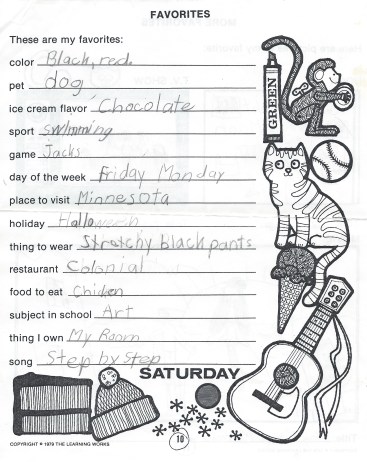 FAVORITES
These are my favorites:
color Black, red.
pet dog
ice cream flavor Chocolate
sport swimming
game Jacks
day of the week Friday Monday
place to visit Minnesota
holiday Halloween
thing to wear Stretchy black pants
restaurant Colonial
food to eat Chicken
subject in school Art
thing I own My Room
song Step by Step
GREEN
SATURDAY
10
COPYRIGHT © 1979 THE LEARNING WORKS